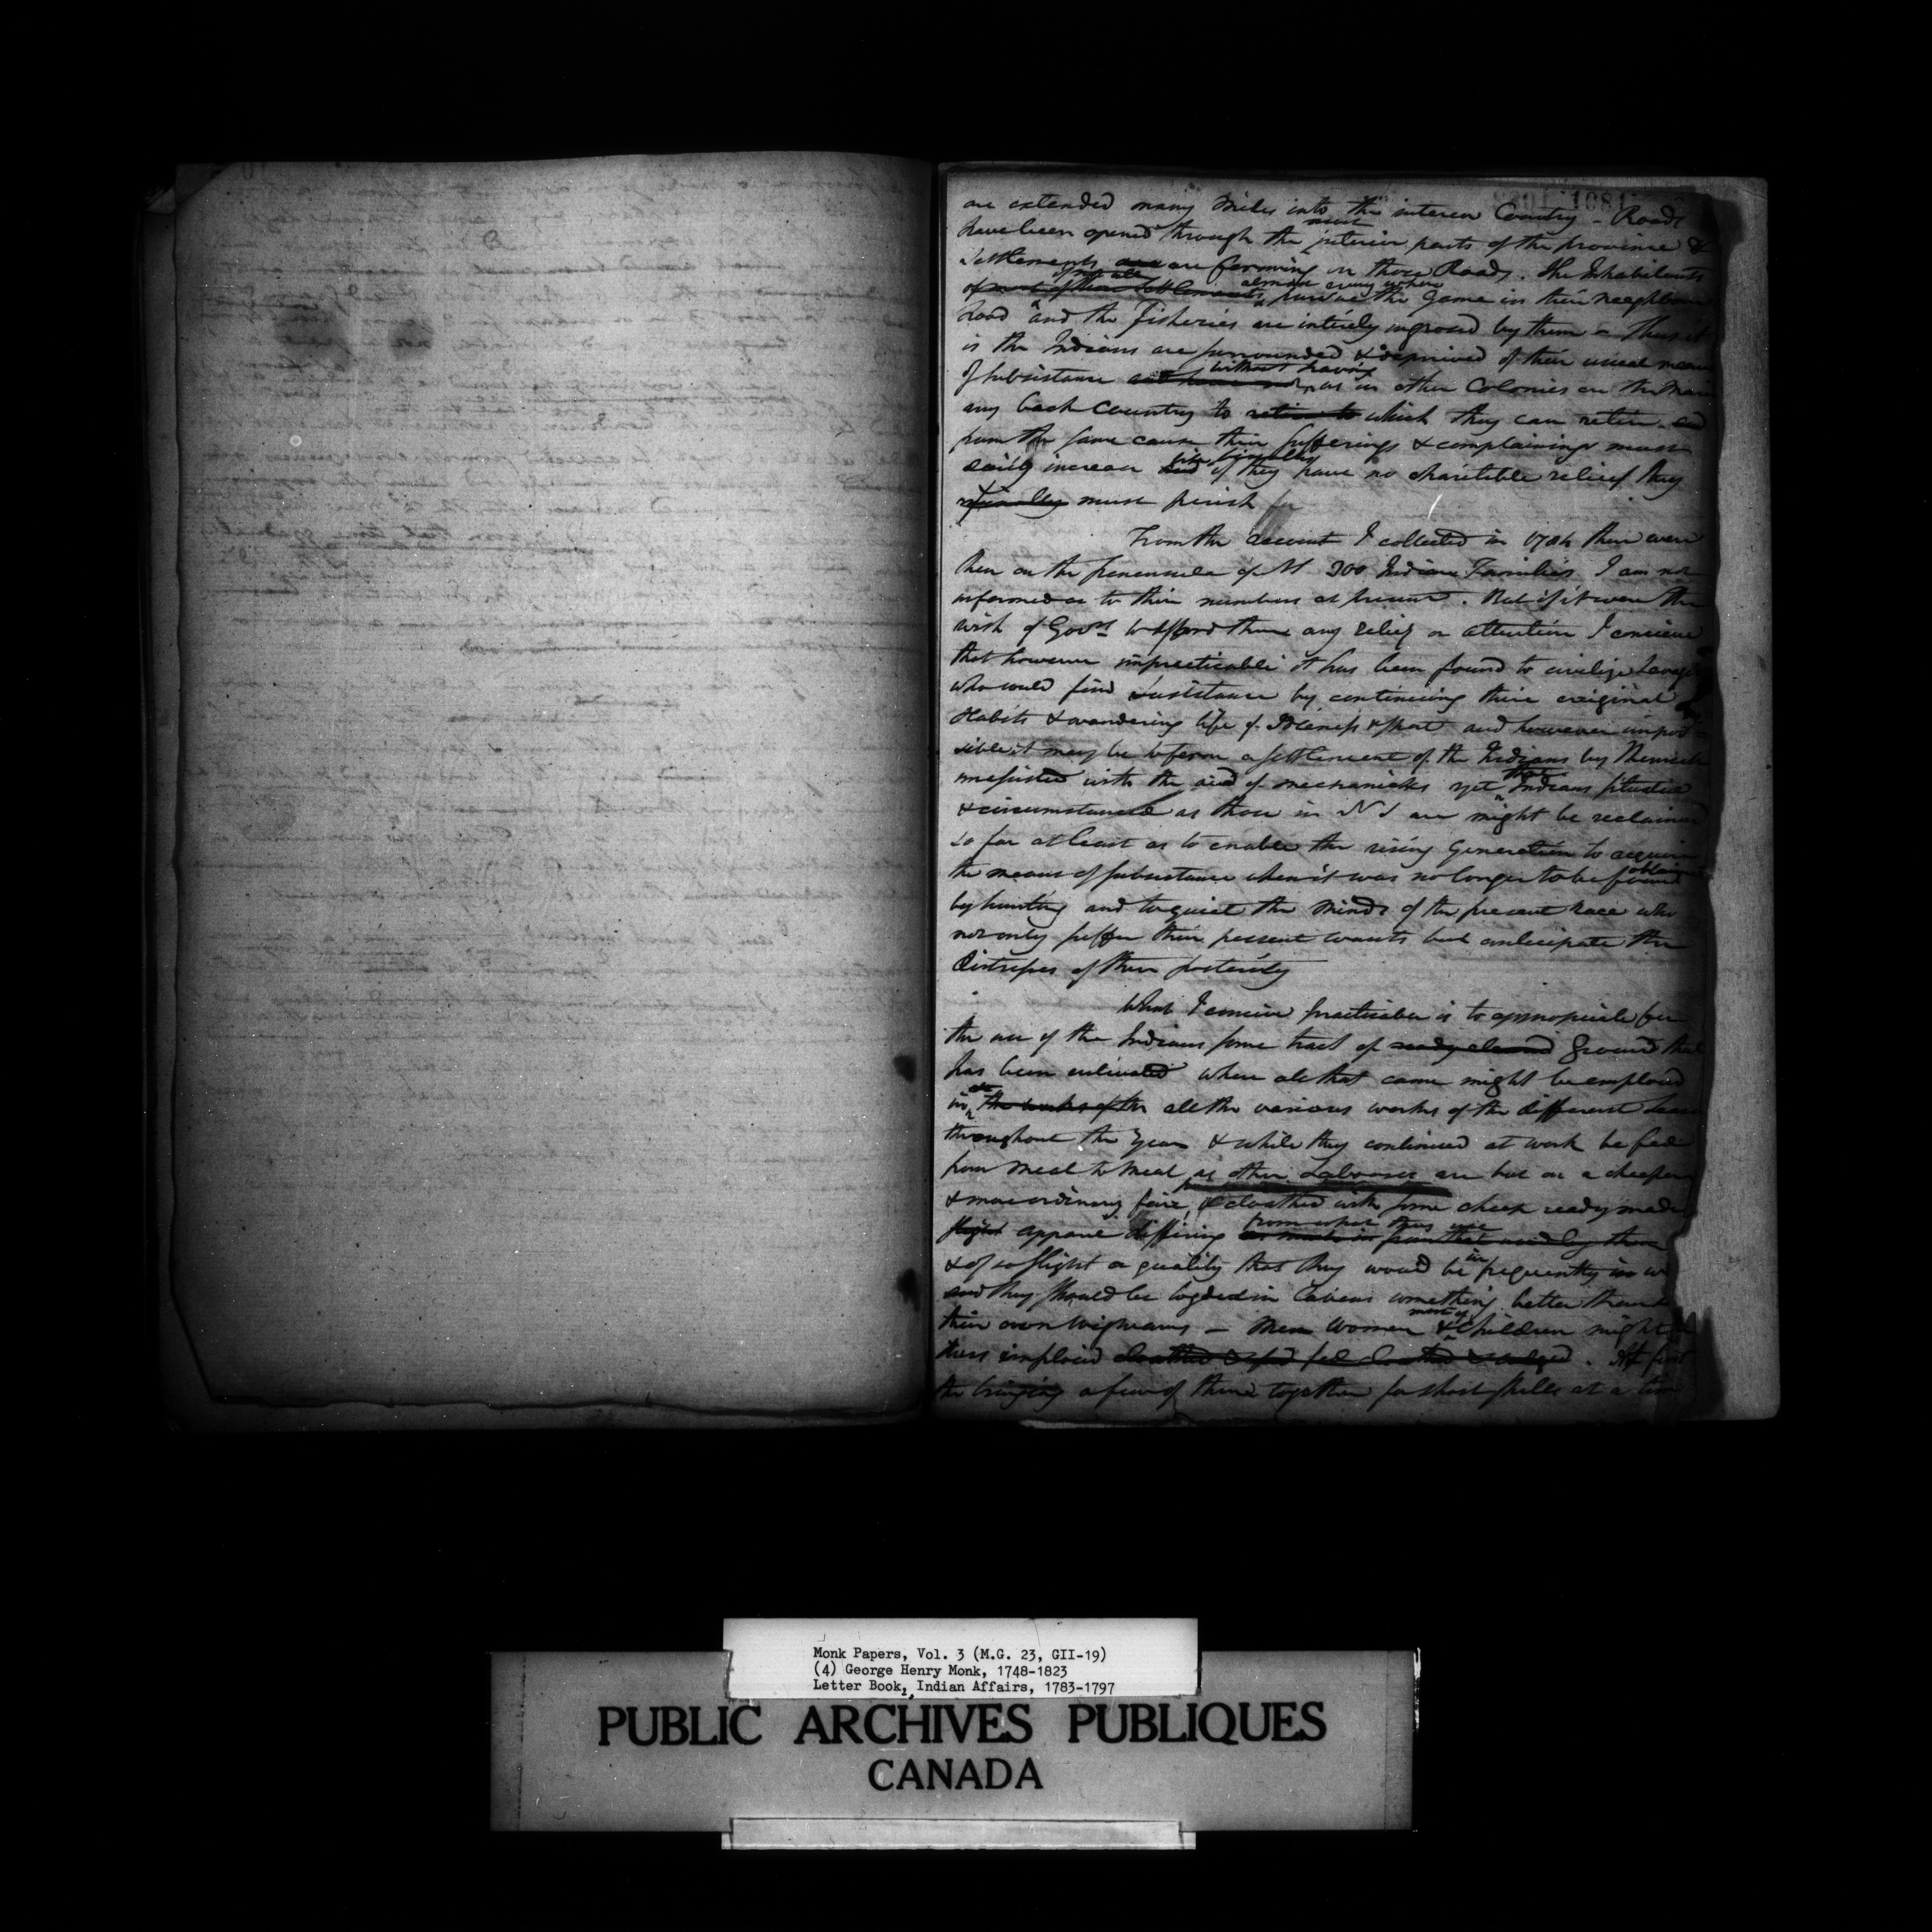 1081
are extended many Miles into the interior Country - Roads
have been opened through the most interior parts of the province &
Settlements are are forming on those Roads. The Inhabitants
of most of these Settlements almost every where pursue the Game in their neighbour
hood and the Fisheries are intirely ingrosed by them - Thus it
is the Indians are surrounded & deprived of their usual means
of subsistance and have not without having as in other Colonies on the Main
any back Country to retire to which they can retire and
from the same cause their sufferings & complainings must
daily increase and if they have no charitable relief they
finally must perish
From the account I collected in 1794 there were
then on the peninsula of 300 Indian Families I am not
informed as to their numbers at present. But if it were the
wish of Govmt to afford them any relief or attention I conceive
that however impracticable it has been found to civilize Savages
who could find subsistance by continuing their original
Habits & wandering life of Idleness & sport and however impos=
sible it may be to form a settlement of the Indians by themselves
unassisted with the aid of mechanicks yet that Indians situated
& circumstanced as those in N S are might be reclaimed
so far at least as to enable the rising Generation to acquire
the means of subsistance when it was no longer to be found obtained
by hunting and to quiet the minds of the present race who
not only suffer their present wants but anticipate the
distresses of their posterity
What I conceive practicable is to appropriate for
the use of the Indians some tract of ready cleared Ground that
has been cultivated where all that came might be employed
in the works of the all the various works of the different Seasons
throughout the Year & while they continued at work be fed
from Meal to Meal as other Labourers are but on a cheaper
& more ordinary fare, & cloathed with some cheap ready made
slight apparel differing from what they use as much in from that used by them
& of so slight a quality that they would be in frequently in
and they should be lodged in Cabins something better than
their own Wigwams - Men Women & most of Children might be
thus imploied cloathed & fed fed cloathed & lodged. At first
the bringing a few of them together for short spells at a time
Monk Papers, Vol. 3 (M.G. 23, GII-19)
(4) George Henry Monk, 1748-1823
Letter Book, Indian Affairs, 1783-1797
PUBLIC ARCHIVES PUBLIQUES
CANADA